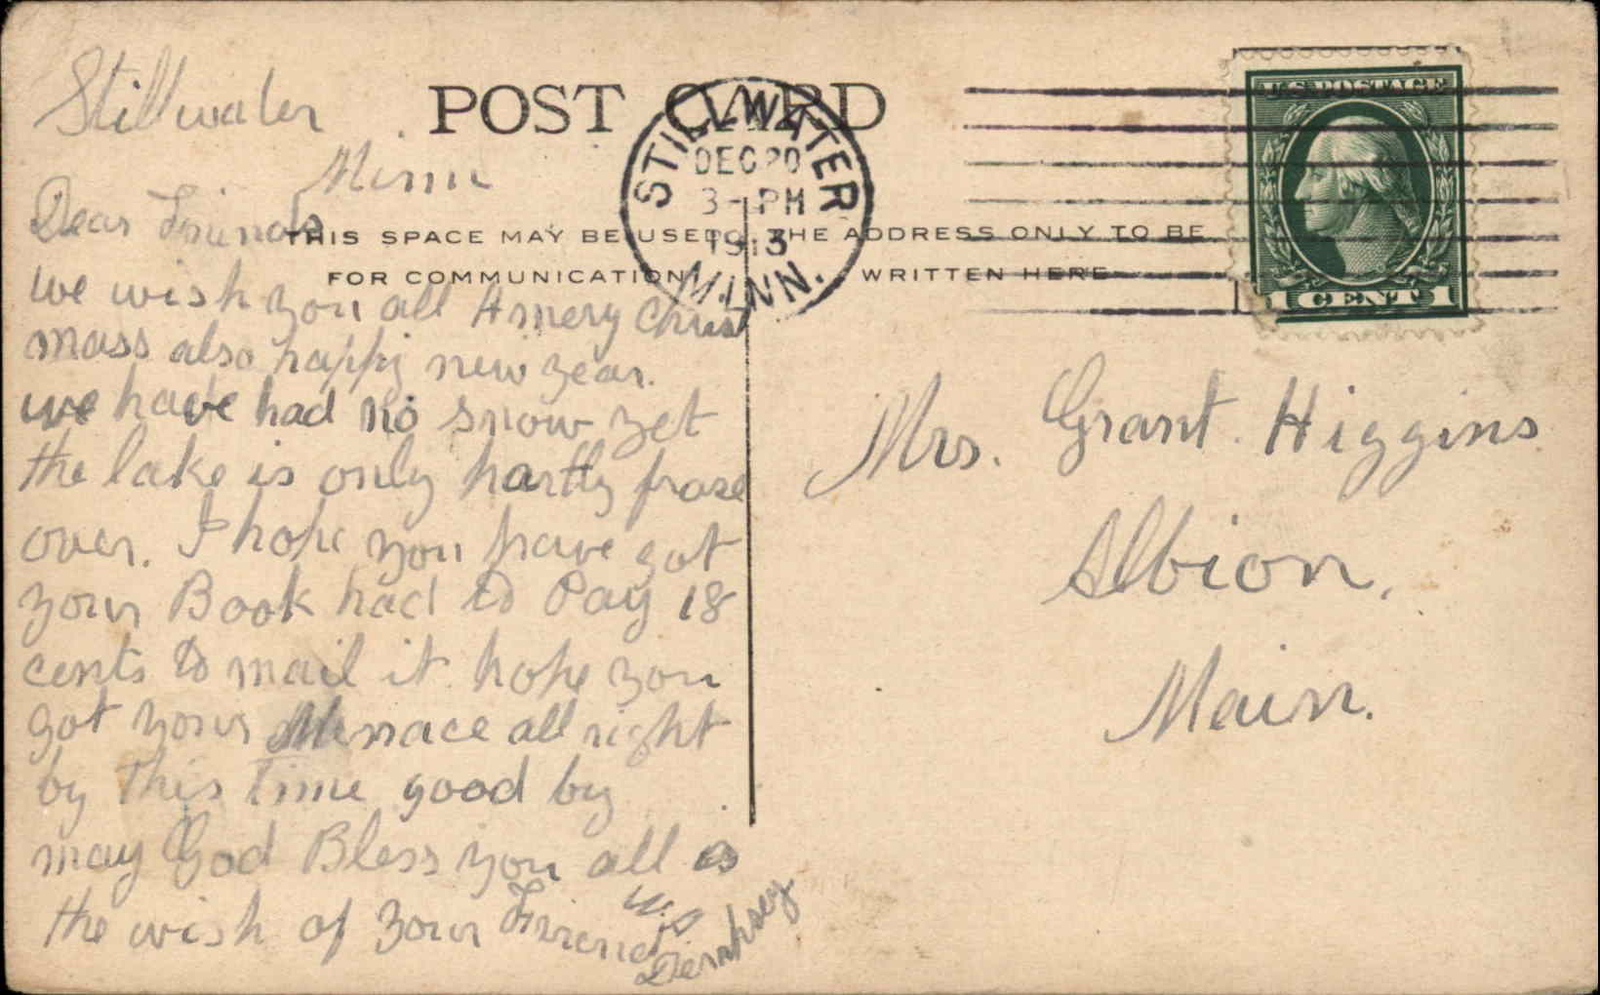 Stillwater
Minn
POST CARD
STILLWATER
DEC 20
3-PM
1913
MINN.
U.S. POSTAGE
1 CENT 1
THIS SPACE MAY BE USED
FOR COMMUNICATION
THE ADDRESS ONLY TO BE
WRITTEN HERE
Dear Friends
we wish you all A mery Christ
mass also happy new year.
we have had no snow yet
the lake is only hartly froze
over. I hope you have got
your Book had to Pay 18
cents to mail it hope you
got your Menace all right
by this Time good by
may God Bless you all is
the wish of your Friend
Mrs. Grant Higgins
Albion,
Main.